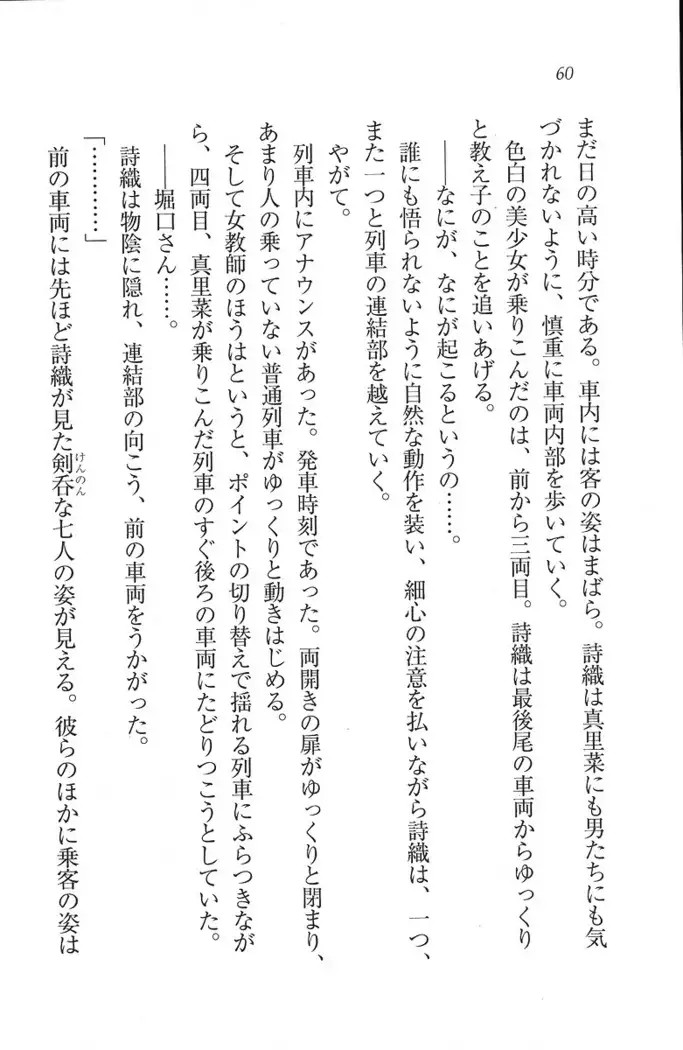 60
まだ日の高い時分である。車内には客の姿はまばら。詩織は真里菜にも男たちにも気
づかれないように、慎重に車両内部を歩いていく。
色白の美少女が乗りこんだのは、前から三両目。詩織は最後尾の車両からゆっくり
と教え子のことを追いあげる。
――なにが、なにが起こるというの……。
誰にも悟られないように自然な動作を装い、細心の注意を払いながら詩織は、一つ、
また一つと列車の連結部を越えていく。
やがて。
列車内にアナウンスがあった。発車時刻であった。両開きの扉がゆっくりと閉まり、
あまり人の乗っていない普通列車がゆっくりと動きはじめる。
そして女教師のほうはというと、ポイントの切り替えで揺れる列車にふらつきなが
ら、四両目、真里菜が乗りこんだ列車のすぐ後ろの車両にたどりつこうとしていた。
――堀口さん……。
詩織は物陰に隠れ、連結部の向こう、前の車両をうかがった。
「…………」
前の車両には先ほど詩織が見た剣呑な七人の姿が見える。彼らのほかに乗客の姿は
けんのん